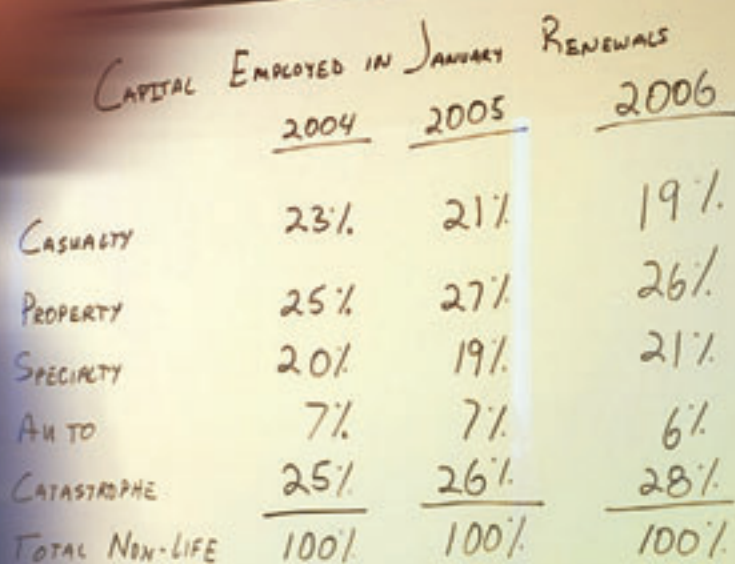 CAPITAL EMPLOYED IN JANUARY RENEWALS
2004 2005 2006
CASUALTY 23% 21% 19%
PROPERTY 25% 27% 26%
SPECIALTY 20% 19% 21%
AUTO 7% 7% 6%
CATASTROPHE 25% 26% 28%
TOTAL NON-LIFE 100% 100% 100%